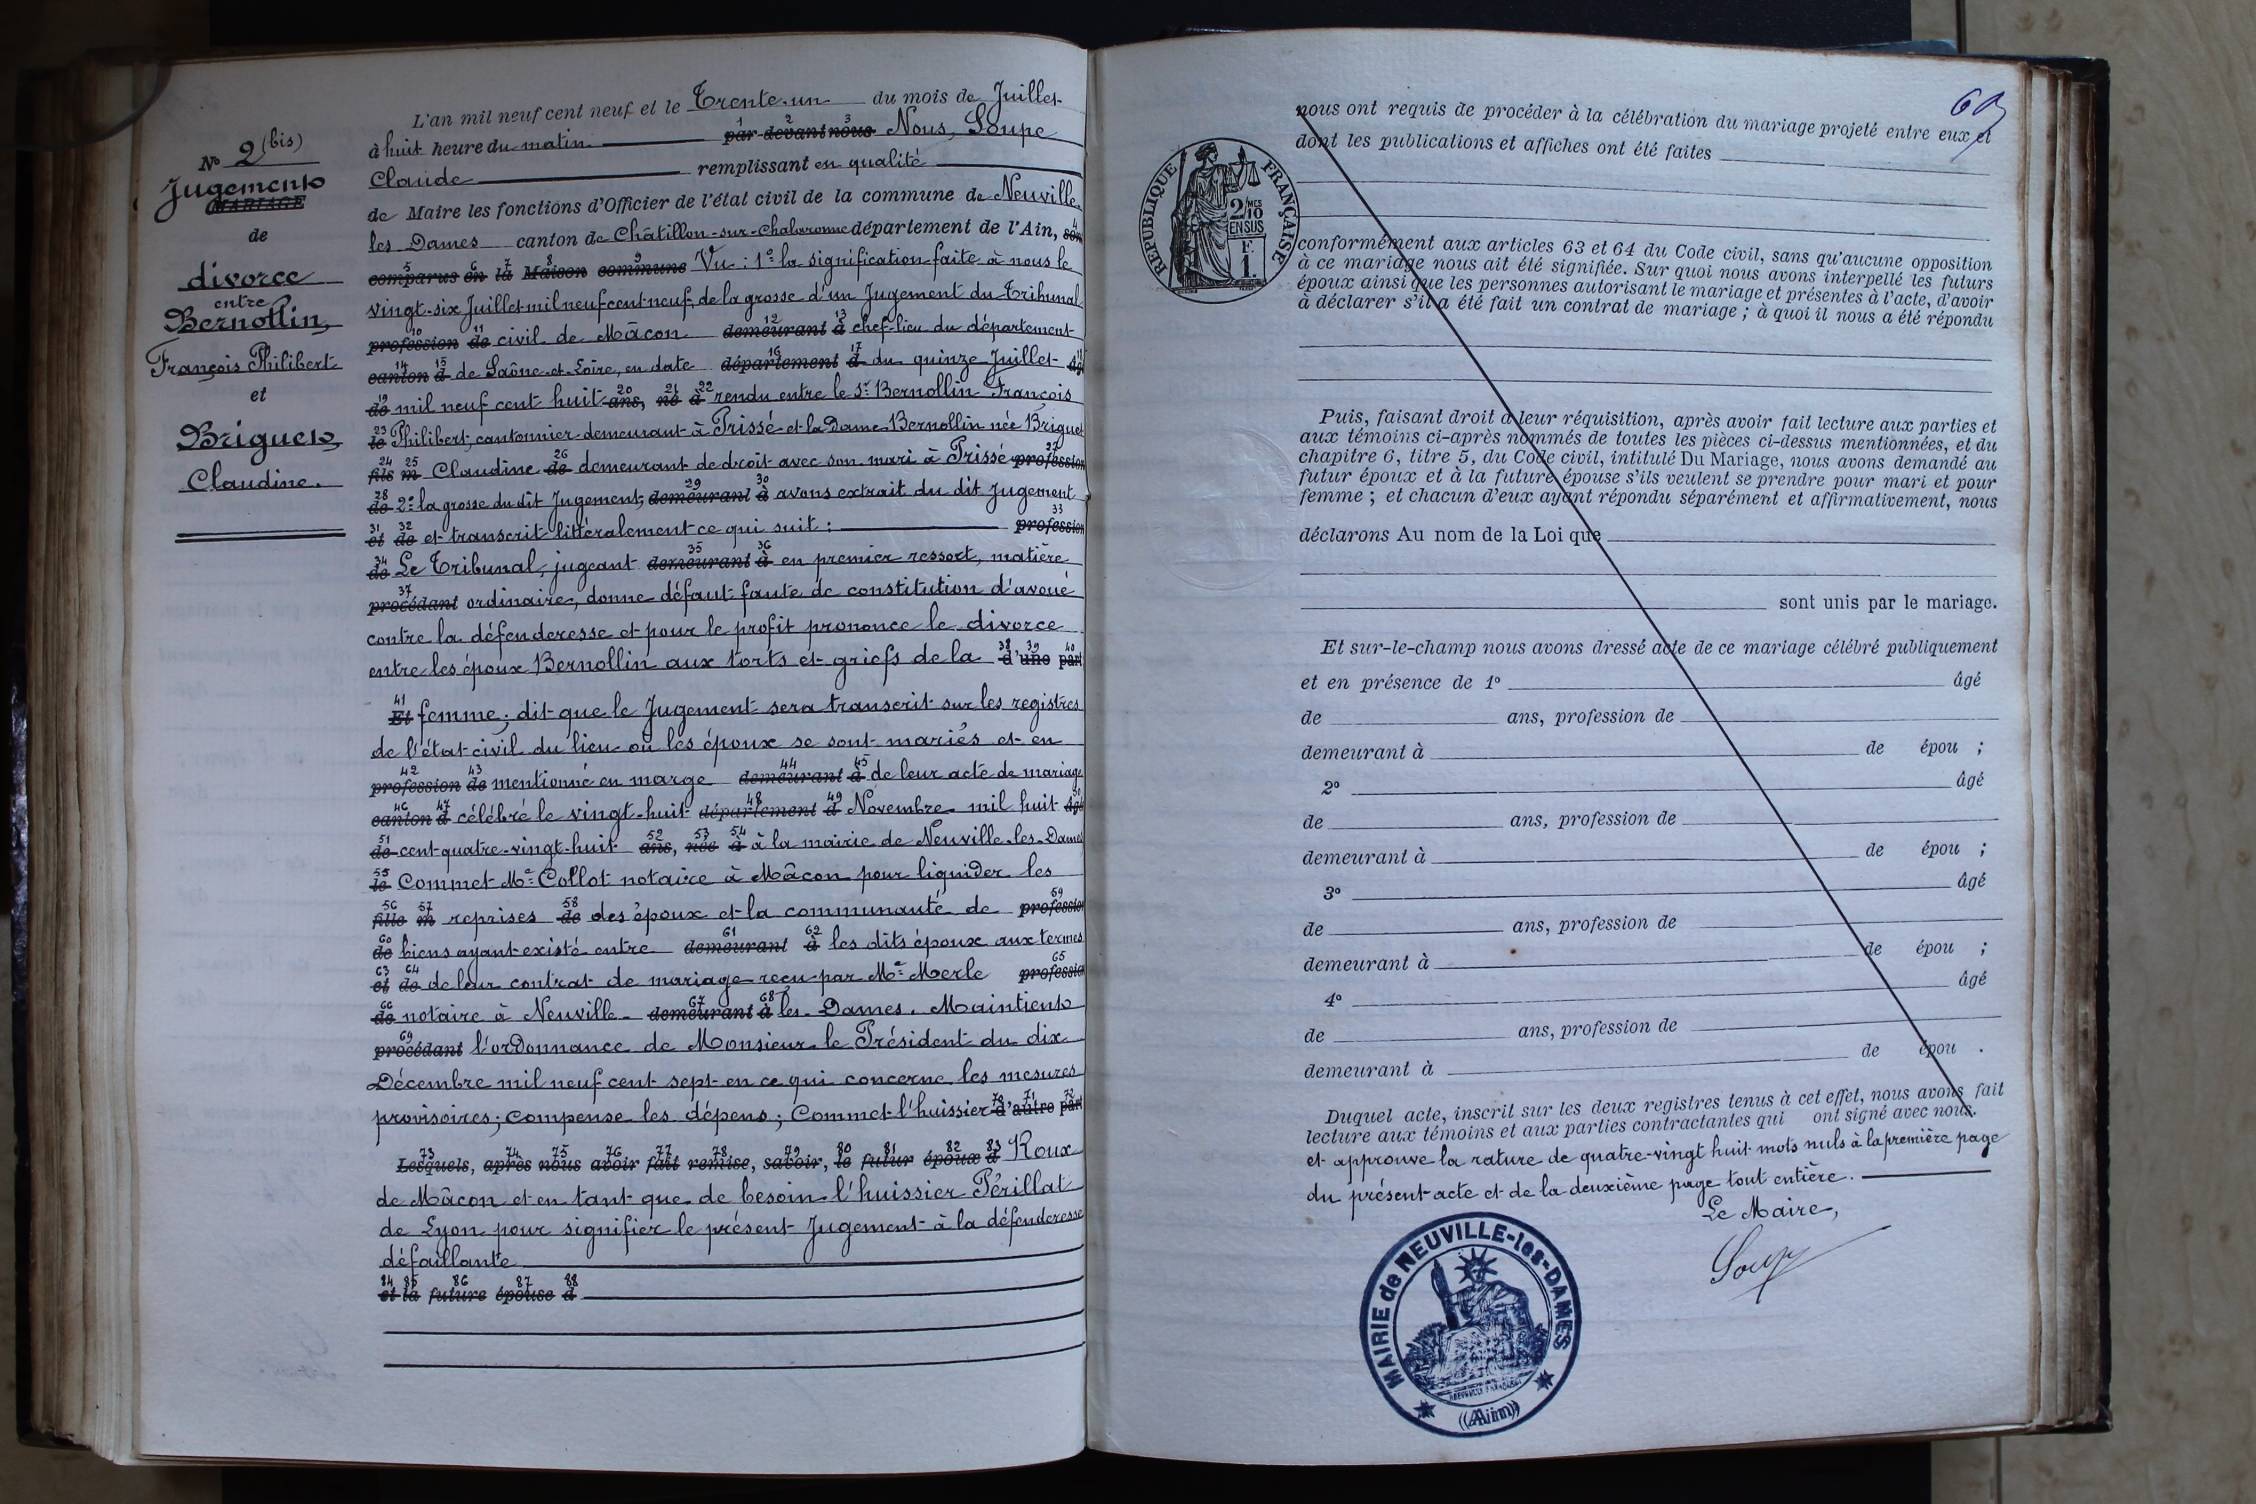 N° 2 (bis)
Jugement
MARIAGE
de
divorce
entre
Bernollin,
François Philibert
et
Briguet,
Claudine.
L'an mil neuf cent neuf et le Trente-un du mois de Juillet
à huit heure du matin par devant nous Nous, Soupe
Claude remplissant en qualité
de Maire les fonctions d'Officier de l'état civil de la commune de Neuville
les Dames canton de Châtillon-sur-Chalaronne département de l'Ain, son
comparus en la Maison commune Vu : 1° la signification faite à nous le
vingt-six Juillet mil neuf cent neuf, de la grosse d'un Jugement du Tribunal
profession de civil de Mâcon demeurant à chef-lieu du département
canton d de Saône-et-Loire, en date département d du quinze Juillet âgé
de mil neuf cent huit ans, né à rendu entre le Sr Bernollin François
le Philibert, cantonnier demeurant à Prissé et la Dame Bernollin née Briguet
fils m Claudine de demeurant de droit avec son mari à Prissé profession
de 2° la grosse du dit Jugement; demeurant à avons extrait du dit Jugement
et de et transcrit littéralement ce qui suit : profession
de Le Tribunal, jugeant demeurant à en premier ressort, matière
procédant ordinaire, donne défaut faute de constitution d'avoué
contre la défenderesse et pour le profit prononce le divorce
entre les époux Bernollin aux torts et griefs de la d'une part
Et femme; dit que le Jugement sera transcrit sur les registres
de l'état-civil du lieu où les époux se sont mariés et en
profession de mentionné en marge demeurant à de leur acte de mariage
canton d célébré le vingt-huit département d Novembre mil huit âgé
de cent quatre-vingt-huit ans, née à à la mairie de Neuville-les-Dames
le Commet Me Collot notaire à Mâcon pour liquider les
fille m reprises de des époux et la communauté de profession
de biens ayant existé entre demeurant à les dits époux aux termes
et de de leur contrat de mariage reçu par Me Merle profession
de notaire à Neuville- demeurant à les-Dames. Maintient
procédant l'ordonnance de Monsieur le Président du dix
Décembre mil neuf cent sept en ce qui concerne les mesures
provisoires; compense les dépens; Commet l'huissier d'autre part
Lesquels, après nous avoir fait remise, savoir, le futur époux d Roux
de Mâcon et en tant que de besoin l'huissier Périllat
de Lyon pour signifier le présent Jugement à la défenderesse
défaillante
et la future épouse d
nous ont requis de procéder à la célébration du mariage projeté entre eux et
dont les publications et affiches ont été faites
RÉPUBLIQUE FRANÇAISE
2/MES 10 EN SUS
F. 1.
conformément aux articles 63 et 64 du Code civil, sans qu'aucune opposition
à ce mariage nous ait été signifiée. Sur quoi nous avons interpellé les futurs
époux ainsi que les personnes autorisant le mariage et présentes à l'acte, d'avoir
à déclarer s'il a été fait un contrat de mariage ; à quoi il nous a été répondu
Puis, faisant droit à leur réquisition, après avoir fait lecture aux parties et
aux témoins ci-après nommés de toutes les pièces ci-dessus mentionnées, et du
chapitre 6, titre 5, du Code civil, intitulé Du Mariage, nous avons demandé au
futur époux et à la future épouse s'ils veulent se prendre pour mari et pour
femme ; et chacun d'eux ayant répondu séparément et affirmativement, nous
déclarons Au nom de la Loi que
sont unis par le mariage.
Et sur-le-champ nous avons dressé acte de ce mariage célébré publiquement
et en présence de 1° âgé
de ans, profession de
demeurant à de épou ;
2° âgé
de ans, profession de
demeurant à de épou ;
3° âgé
de ans, profession de
demeurant à de épou ;
4° âgé
de ans, profession de
demeurant à de épou .
Duquel acte, inscrit sur les deux registres tenus à cet effet, nous avons fait
lecture aux témoins et aux parties contractantes qui ont signé avec nous.
et approuve la rature de quatre-vingt huit mots nuls à la première page
du présent acte et de la deuxième page tout entière.
Le Maire,
MAIRIE de NEUVILLE-les-DAMES
(Ain)